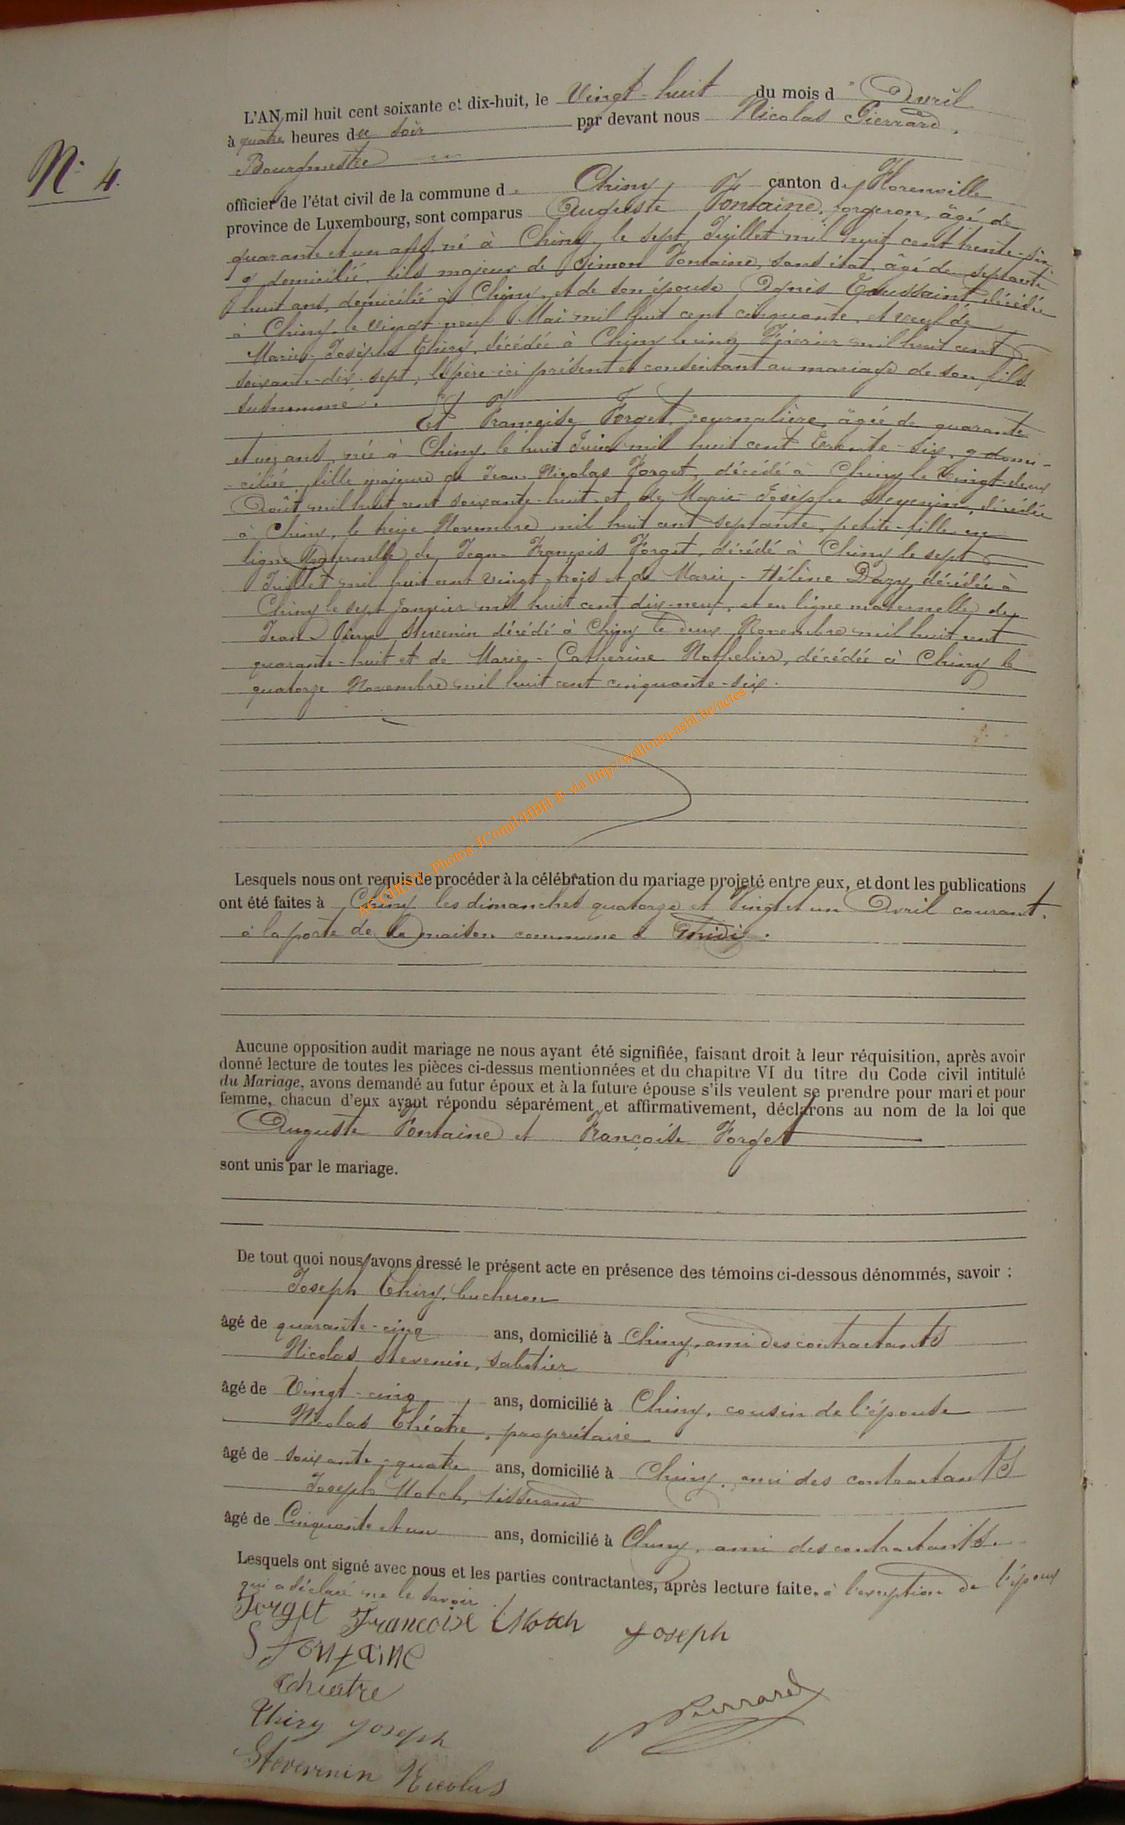 N° 4.
L'AN mil huit cent soixante et dix-huit, le Vingt-huit du mois d' Avril
à quatre heures du soir par devant nous Nicolas Pierrard,
Bourgmestre
officier de l'état civil de la commune de Chiny canton de Florenville
province de Luxembourg, sont comparus Auguste Fontaine, forgeron, âgé de
quarante et un ans, né à Chiny, le sept Juillet mil huit cent trente-six,
y domicilié, fils majeur de Simon Fontaine, sans état, âgé de septante
huit ans, domicilié à Chiny, et de son épouse Agnès Toussaint, décédée
à Chiny le vingt neuf Mai mil huit cent cinquante, et veuf de
Marie-Josèphe Thiry, décédée à Chiny le cinq Février mil huit cent
soixante-dix-sept, le père ici présent et consentant au mariage de son fils
susnommé.
Et Françoise Forget, journalière, âgée de quarante
et un ans, née à Chiny le huit Juin mil huit cent trente-six, y domi-
ciliée, fille majeure de Jean-Nicolas Forget, décédé à Chiny le vingt-deux
Août mil huit cent soixante-huit et de Marie-Josèphe Stevenin, décédée
à Chiny, le treize Novembre mil huit cent septante, petite-fille en
ligne Paternelle de Jean François Forget, décédé à Chiny le sept
Juillet mil huit cent vingt-trois et de Marie-Hélène Dazy, décédée à
Chiny le sept Janvier mil huit cent dix-neuf, et en ligne maternelle de
Jean Pierre Stevenin décédé à Chiny le deux Novembre mil huit cent
quarante-huit et de Marie-Catherine Nothelier, décédée à Chiny le
quatorze Novembre mil huit cent cinquante-six.
Photos via http://
Lesquels nous ont requis de procéder à la célébration du mariage projeté entre eux, et dont les publications
ont été faites à Chiny les dimanches quatorze et Vingt et un Avril courant,
à la porte de la maison commune à midi.
Aucune opposition audit mariage ne nous ayant été signifiée, faisant droit à leur réquisition, après avoir
donné lecture de toutes les pièces ci-dessus mentionnées et du chapitre VI du titre du Code civil intitulé
du Mariage, avons demandé au futur époux et à la future épouse s'ils veulent se prendre pour mari et pour
femme, chacun d'eux ayant répondu séparément et affirmativement, déclarons au nom de la loi que
Auguste Fontaine et Françoise Forget
sont unis par le mariage.
De tout quoi nous avons dressé le présent acte en présence des témoins ci-dessous dénommés, savoir :
Joseph Thiry, bucheron
âgé de quarante-cinq ans, domicilié à Chiny, ami des contractants
Nicolas Stevenin, sabotier
âgé de Vingt-cinq ans, domicilié à Chiny, cousin de l'épouse
Nicolas Théatre, propriétaire
âgé de soixante-quatre ans, domicilié à Chiny, ami des contractants
Joseph Motch, tisserand
âgé de Cinquante et un ans, domicilié à Chiny, ami des contractants.
Lesquels ont signé avec nous et les parties contractantes, après lecture faite. à l'exception de l'époux
qui a déclaré ne le savoir.
Forget Francoise Motch Joseph
S fontaine
Théatre
Thiry Joseph
Pierrard
Stevenin Nicolas